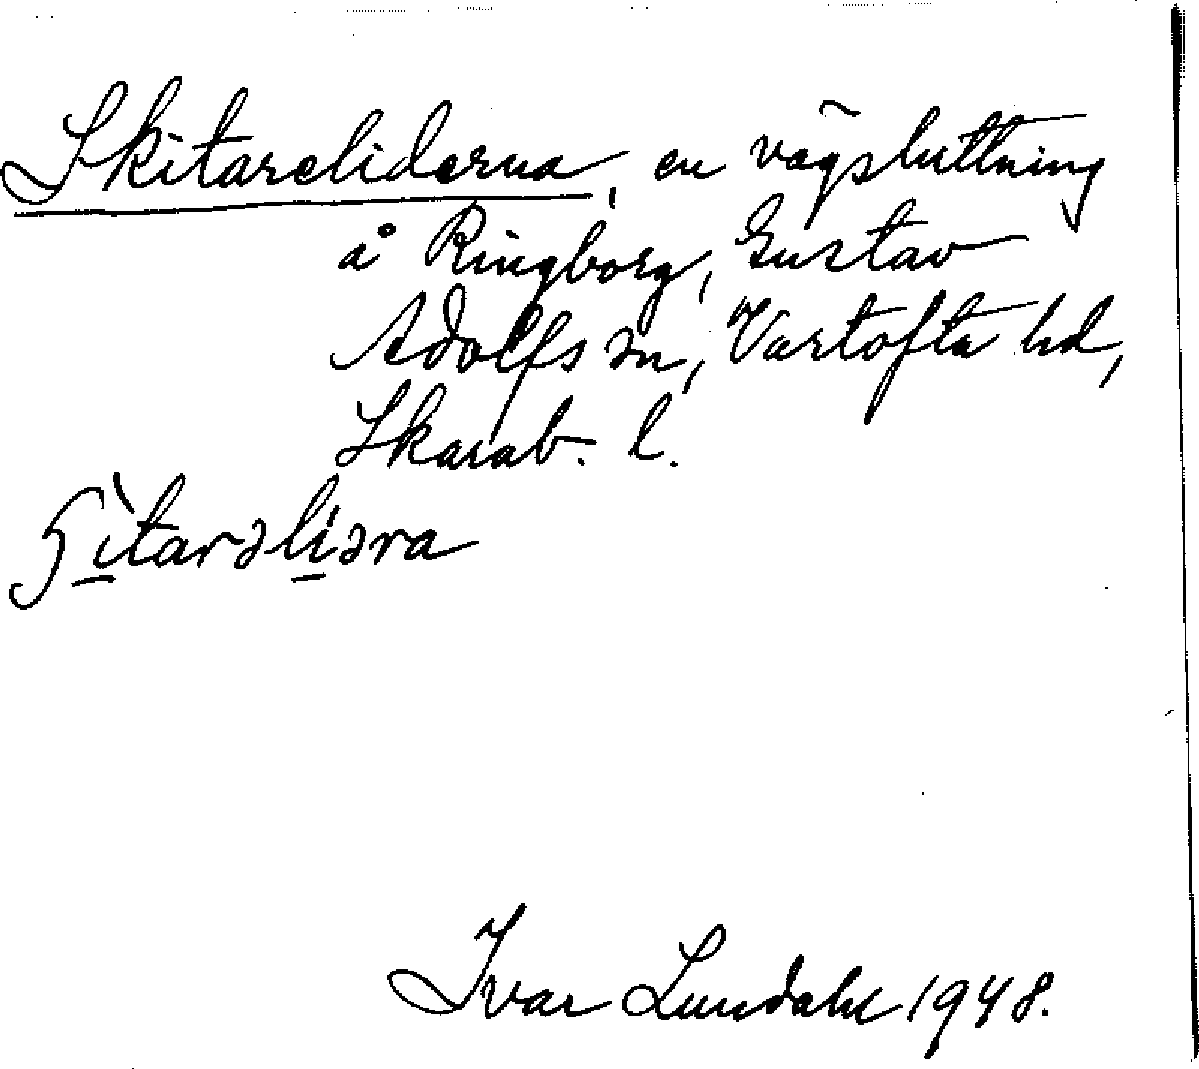 Skitareliderna, en vägsluttning
å Ringborg, Gustav
Adolfs sn, Vartofta hd,
Skarab. l.
ʃì̱tarəlí̱əra
Ivar Lundahl 1948.